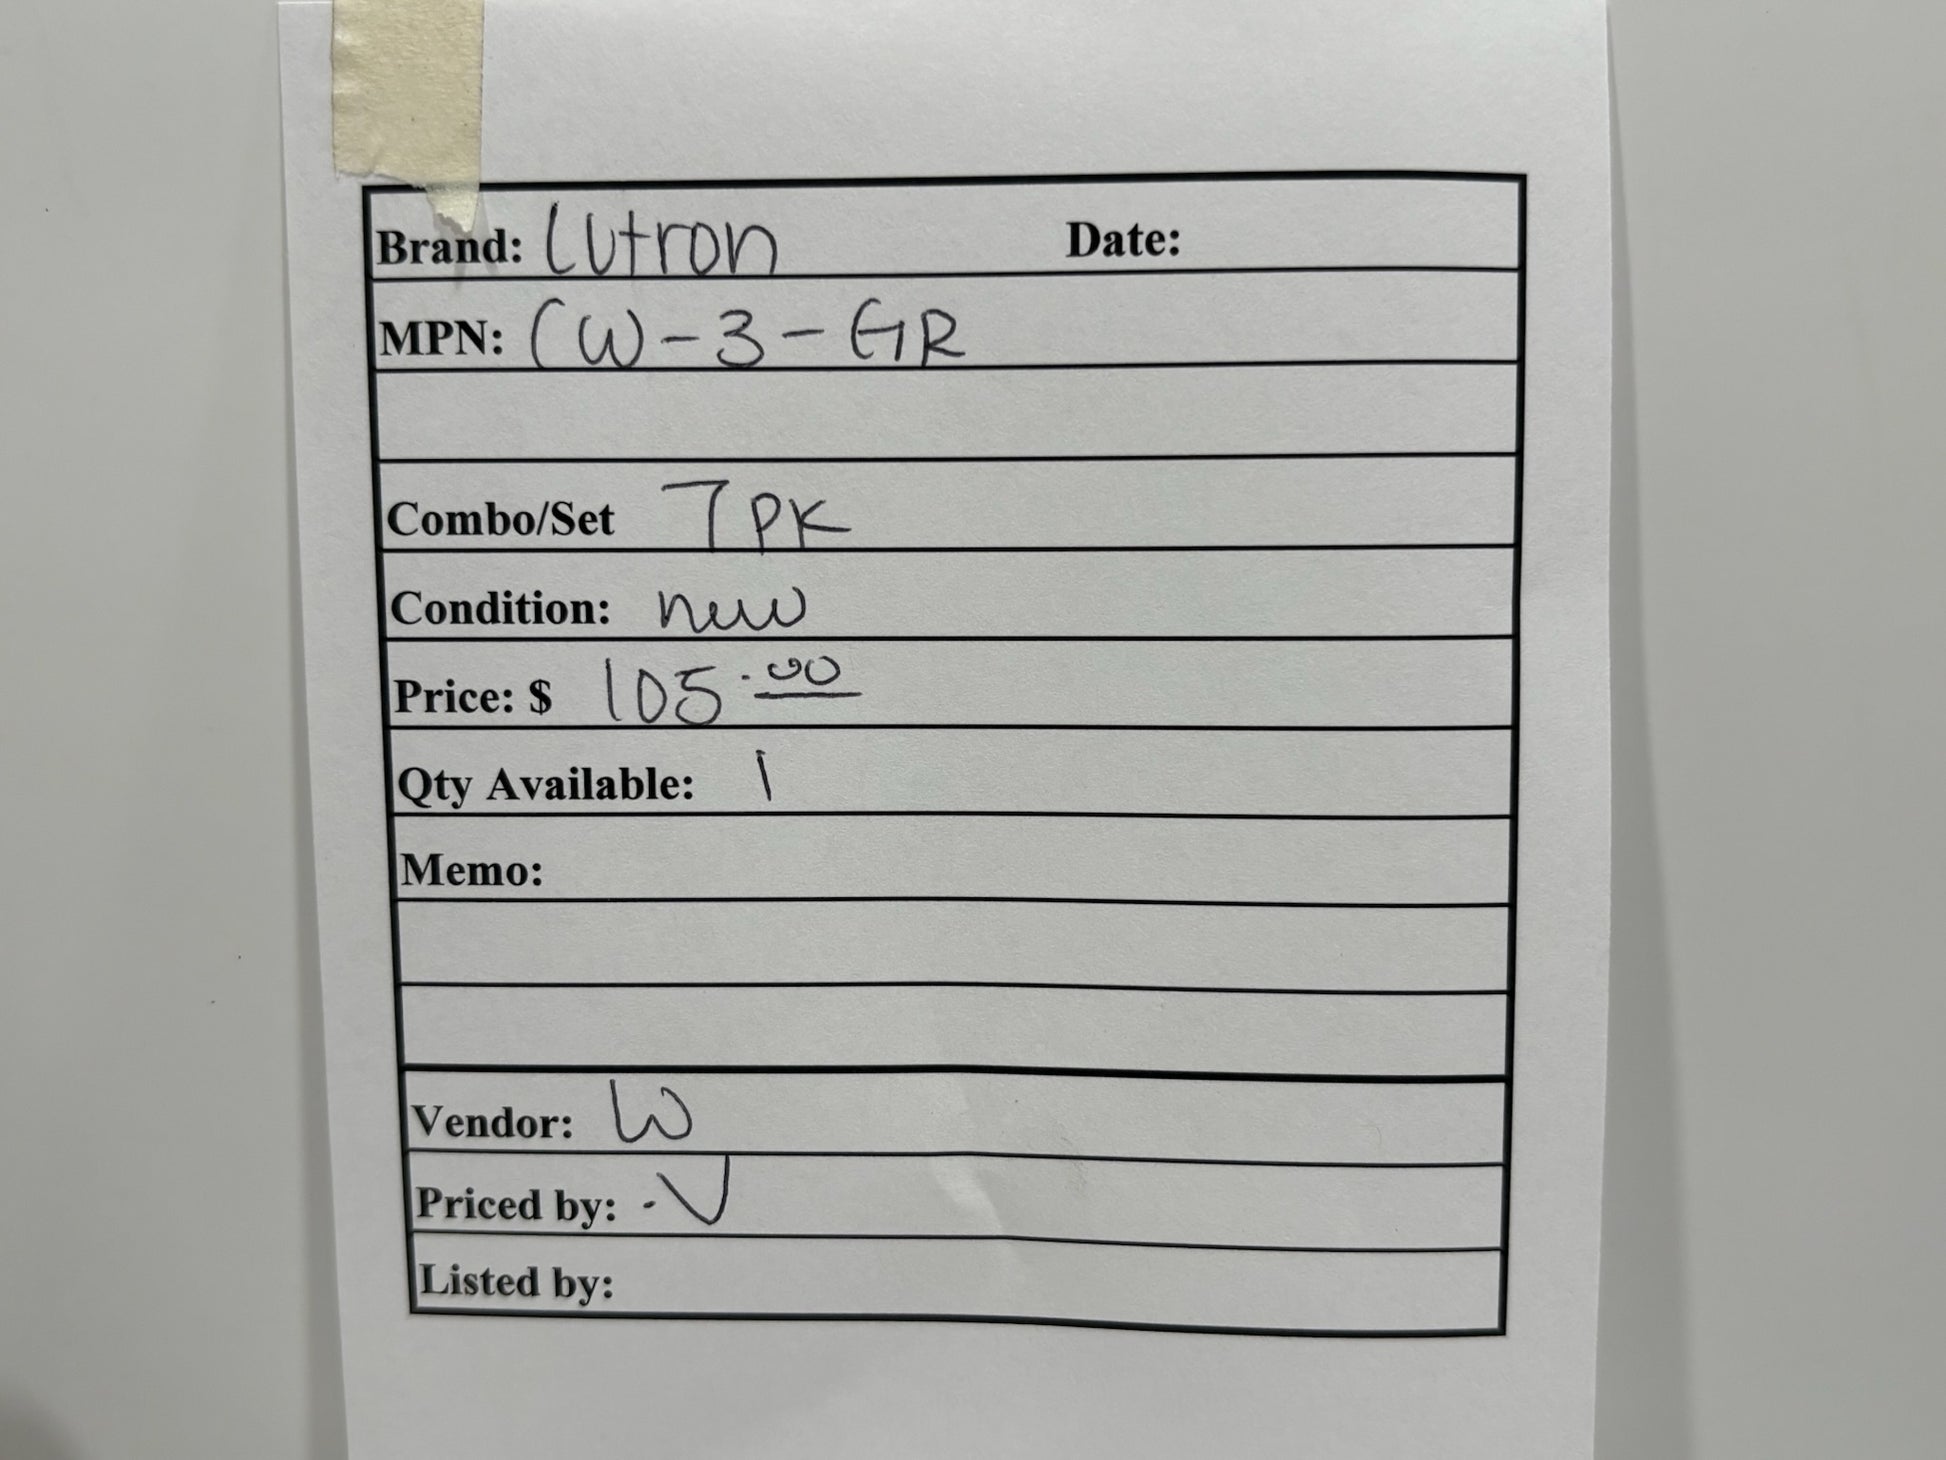 Brand: Lutron Date:
MPN: CW-3-GR
Combo/Set 7 PK
Condition: new
Price: $ 105.00
Qty Available: 1
Memo:
Vendor: W
Priced by: -V
Listed by: